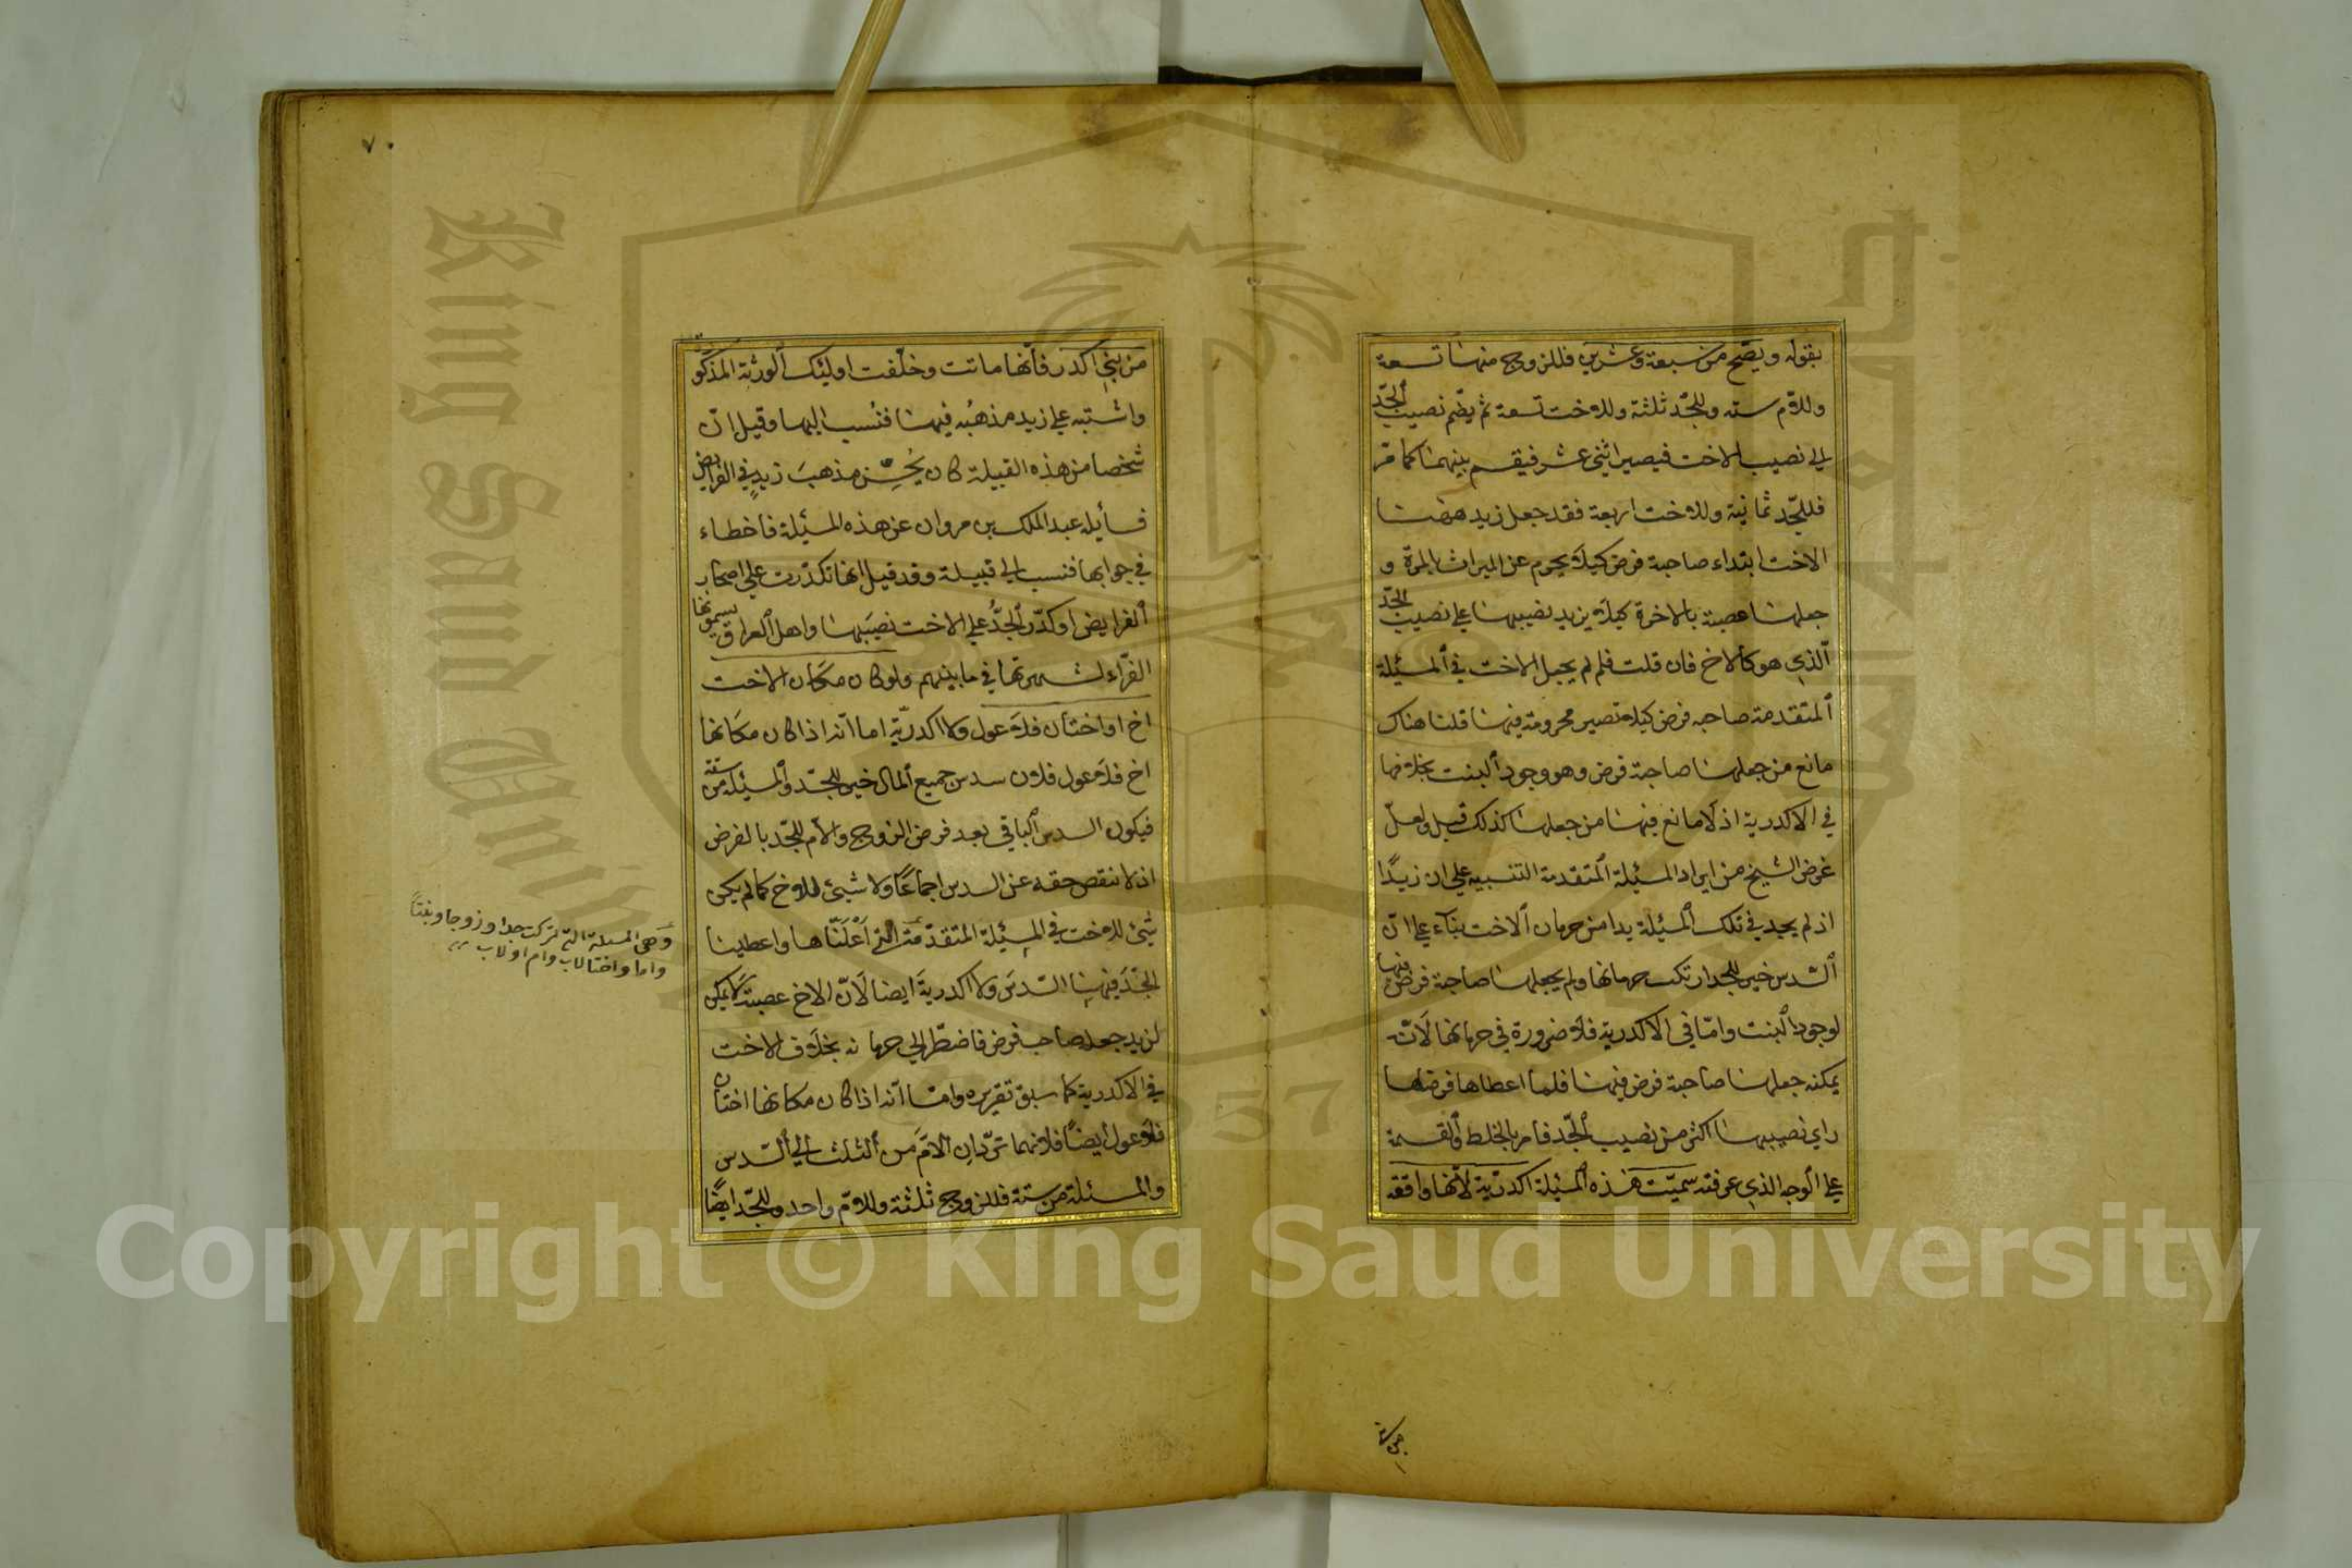 بقوله ويصح من سبعة وعشرين فللزوج منها تسعة
وللام سته وللجد ثلثة وللاخت تسعة ثم يضم نصيب الجد
الى نصيب الاخت فيصير اثنى عشر فيقسم بينهما كما مر
فللجد ثمانية وللاخت اربعة فقد جعل زيد ههنا
الاخت ابتداء صاحبة فرض كيلا يحرم عن الميراث بالمرة و
جعلها عصبة بالاخرة كيلا يزيد نصيبها على نصيب الجد
الذي هو كالاخ فان قلت فلم لم يجعل الاخت في المسئلة
المتقدمة صاحبه فرض كيلا تصير محرومة فيها قلنا هناك
مانع من جعلها صاحبة فرض وهو وجود البنت بخلافها
في الاكدرية اذ لا مانع فيها من جعلها كذلك قيل ولعل
غرض الشيخ من ايراد المسئلة المتقدمة التنبيه على ان زيدًا
اذ لم يجد في تلك المسئلة بدا من حرمان الاخت بناء على ان
السدس خير للجد ارتكب حرمانها ولم يجعلها صاحبة فرض فيها
لوجود البنت وامّا في الاكدرية فلا ضرورة في حرمانها لانّه
يمكنه جعلها صاحبة فرض فيها فلما اعطاها فرضها
راى نصيبها اكثر من نصيب الجد فامر بالخلط والقسمة
على الوجه الذي عرفته سميت هذه المسئلة اكدريّة لانّها واقعة
من بني
٧٠
من بني اكدر فانها ماتت وخلّفت اولئك الورثة المذكو
واشتبه على زيد مذهبُه فيها فنُسب اليها وقيل انّ
شخصا من هذه القبيلة كان يُحسِن مذهبَ زيدٍ في الفرايض
فسأله عبد الملك بن مروان عن هذه المسئلة فاخطاء
في جوابها فنسب الى قبيلة وقد قيل انها تكدّرت على اصحاب
الفرايض او كدّر الجدُّ على الاخت نصيبَها واهل العراق يسمونها
الغرّاء لشهرتها في ما بينهم ولو كان مكان الاخت
اخ او اختان فلا عول ولا اكدريّة اما انّه اذا كان مكانها
اخ فلا عول فلان سدس جميع المال خير للجد والمسئلة من ستة
فيكون السدس الباقي بعد فرض الزوج والام للجد بالفرض
اذ لا ينقص حقه عن السدس اجماعًا ولا شيئ للاخ كما لم يكن
شيئ للاخت في المسئلة المتقدّمة التي اعلنّاها واعطينا
الجدَّ فيها السّدسَ ولا اكدريةَ ايضا لانّ الاخ عصبة لا يمكن
لزيد جعله صاحب فرض فاضطر الى حرمانه بخلاف الاخت
في الاكدرية كما سبق تقريره وامّا انّه اذا كان مكانها اختان
فلا عول ايضًا فلانهما تردّان الامّ من الثلث الى السّدس
والمسئلة من ستة فللزوج ثلثة وللامّ واحد وللجد ايضًا
وهى المسئلة التي تركت جدا وزوجا وبنتًا
واما واختا لاب وام او لاب